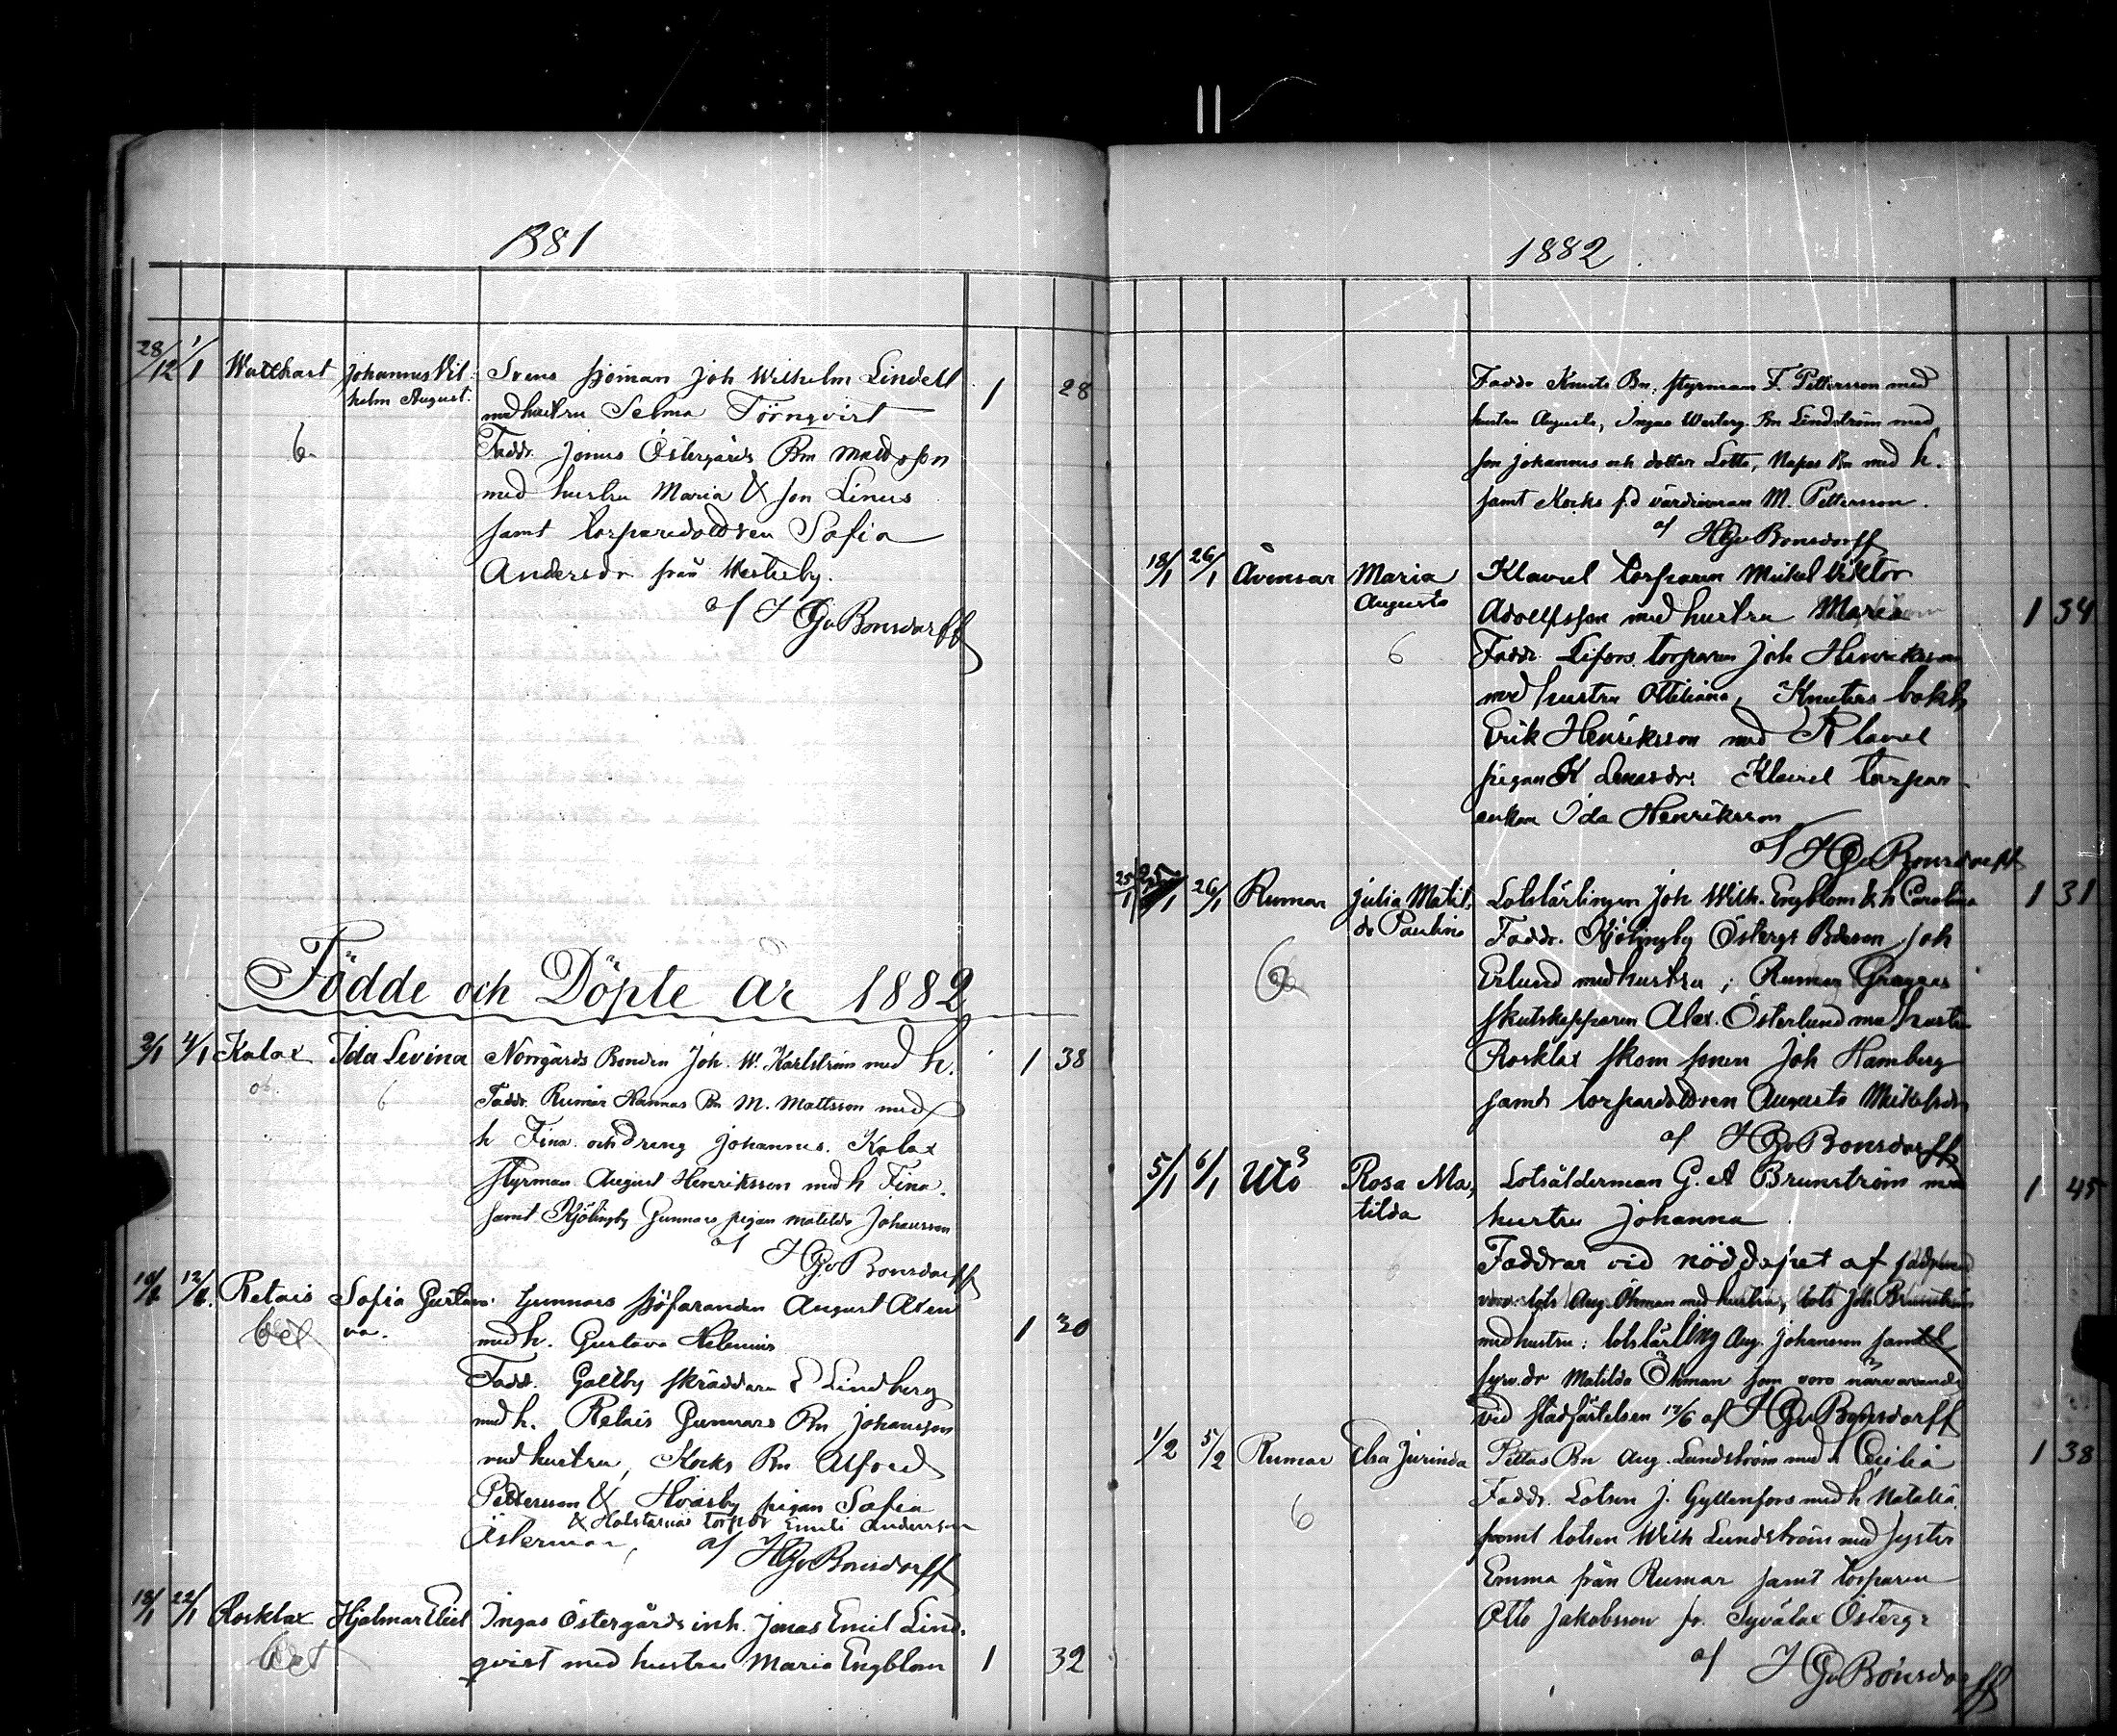 1881
28/12 1/1 Wattkast Johannes Vil- Svens sjöman Joh Wilhelm Lindell 1 28
helm August. med hustru Selma Törnqvist
6 Fadd. Jonus Östergårds Bn Mattsson
med hustru Maria & son Linus
samt torparedottren Sofia
Andersdr från Westerby.
af HGvBonsdorff
Födde och Döpte år 1882
2/1 4/1 Kalax Ida Levina Norrgårds Bonden Joh. W. Karlström med h. 1 38
6 Fadd. Rumar Hannas Bn M. Mattsson med
h Fina och dreng Johannes. Kalax
styrman August Henriksson med h Fina.
samt Kjölingby Gunnars pigan Matilda Johansson
af HGvBonsdorff
10/1 12/1 Retais Sofia Gusta- Gunnars sjöfaranden August Axen 1 30
va. med h. Gustava Helenius
Fadd. Galtby skräddare E Lindberg
med h. Retais Gunnars Bn Johansson
med hustru, Kocks Bn Alfred
Pettersson & Hvarby pigan Sofia
& Holstarnäs torpdr Emili Andersson
Österman, af HGvBonsdorff
18/1 22/1 Rosklax Hjalmar Eliel Ingas Östergårds inh. Jonas Emil Lind-
qvist med hustru Maria Engblom 1 32
1882
Fadd. Knuts Bn, styrman F. Pettersson med
hustru Augusta, Ingas Westerg. Bn Lindström med
son Johannes och dotter Lotta, Napas Bn med h.
samt Kocks f.d värdinnan M. Pettersson.
af HGvBonsdorff
18/1 26/1 Åvensar Maria Klavel torparen Mickel Viktor
Augusta Adolfsson med hustru Maria 1 34
6 Fadd. Lifors torparen Joh Henriksson
med hustru Ottiliana, Knuters bokh
Erik Henriksson med Klavel
pigan K Lenasdr. Klavel torpar-
enkan Ida Henriksson
af HGvBonsdorff
25/1 26/1 Rumar Julia Matil- Lotslärlingen Joh Wilh. Engblom & h Carolina 1 31
da Paulina Fadd. Kjölingby Östergs Bdeson Joh
Erlund med hustru, Rumar Grannas
skutskepparen Alex. Österlund med hustru
Rosklax skom sonen Joh Hamberg
samt torparedottren Augusta Mickelsdr
af HGvBonsdorff
5/1 6/1 Utö Rosa Ma- Lotsålderman G. A Brunström med 1 45
tilda hustru Johanna
Faddrar vid nöddopet af
voro lots Aug. Öhman med hustru, lots Joh Brunström
med hustru: lotslärling Aug. Johansson samt
Matilda Öhman som voro närvarande
vid stadfästelsen 12/6 af HGvBonsdorff
1/2 5/2 Rumar Elsa Jurinda Pittas Bn Aug. Lundström med h Cecilia 1 38
6 Fadd. Lotsen J. Gyllenfors med h. Natalia
samt lotsen Wilh Lundström med syster
Emma från Rumar samt torparen
Otto Jakobsson fr. Tyvälax Österg:
af HGvBonsdorff